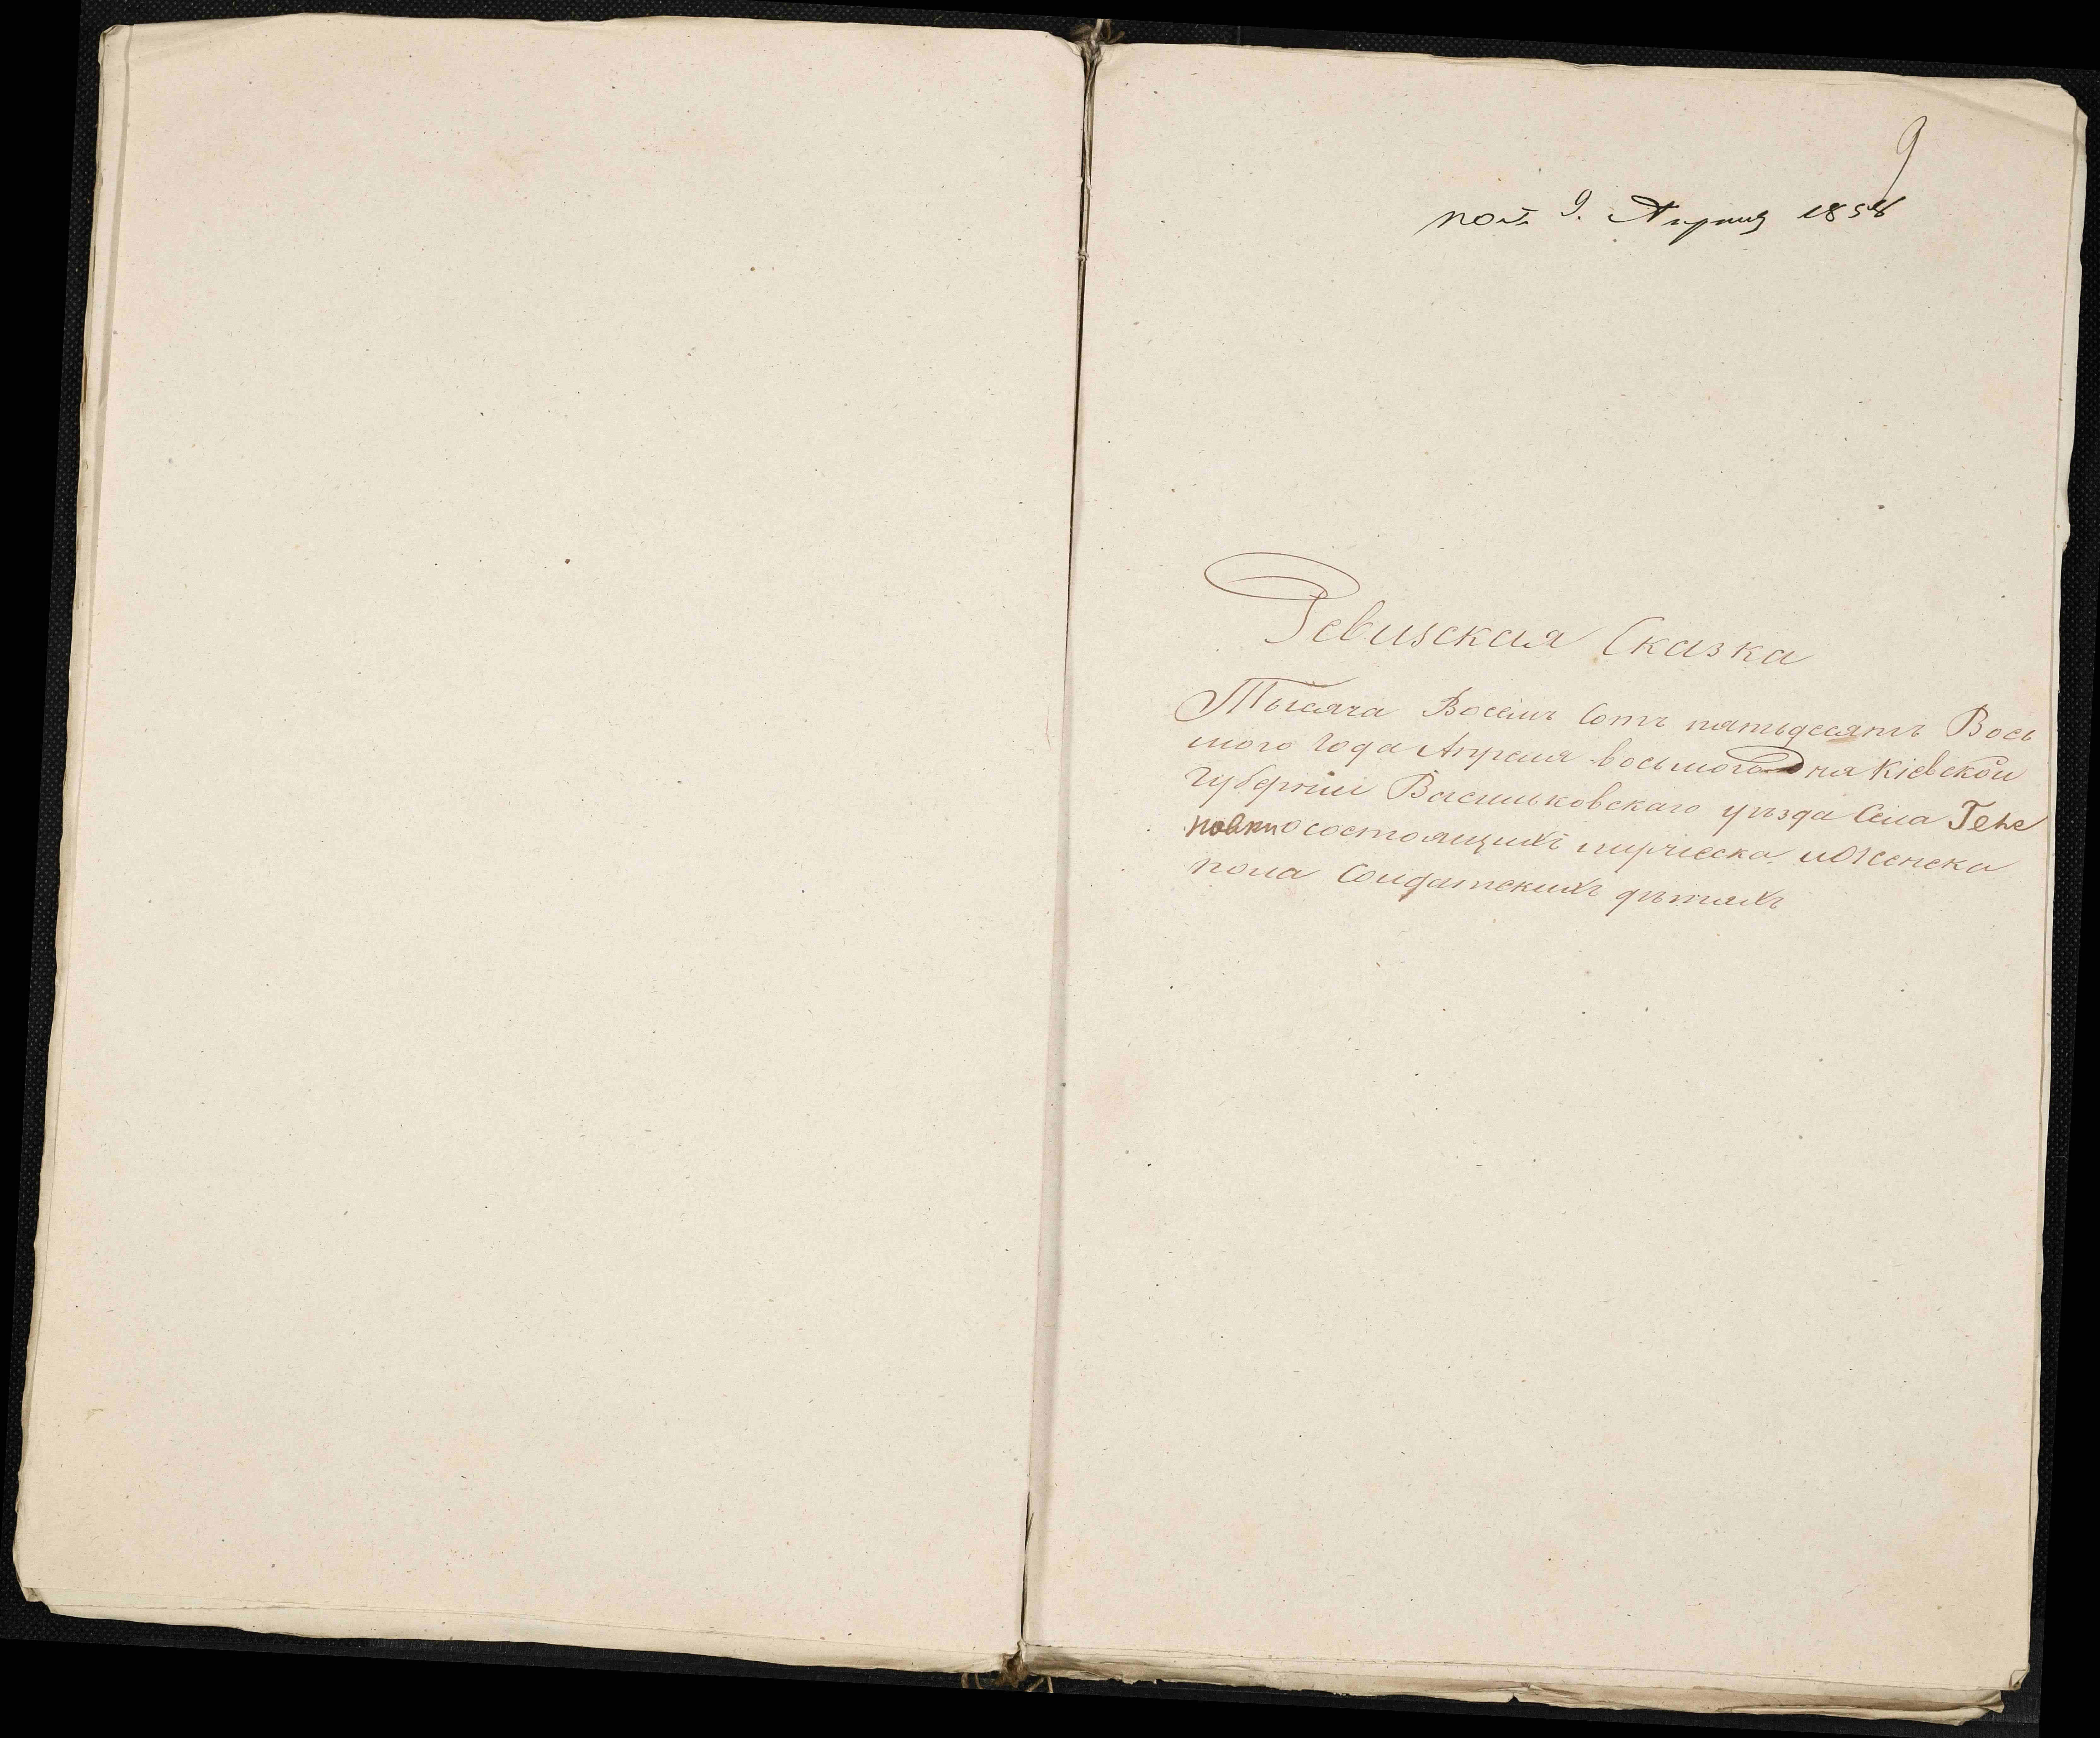 9
пол. 9. Апреля 1858
Ревизская Сказка
Тысяча Восемь Сотъ пятьдесятъ Вось
мого года Апреля восьмого Дня Кіевской
Губерніи Васильковскаго уѣзда Села Гене
новки о состоящихъ мужеска и Женска
пола Солдатскихъ дѣтяхъ